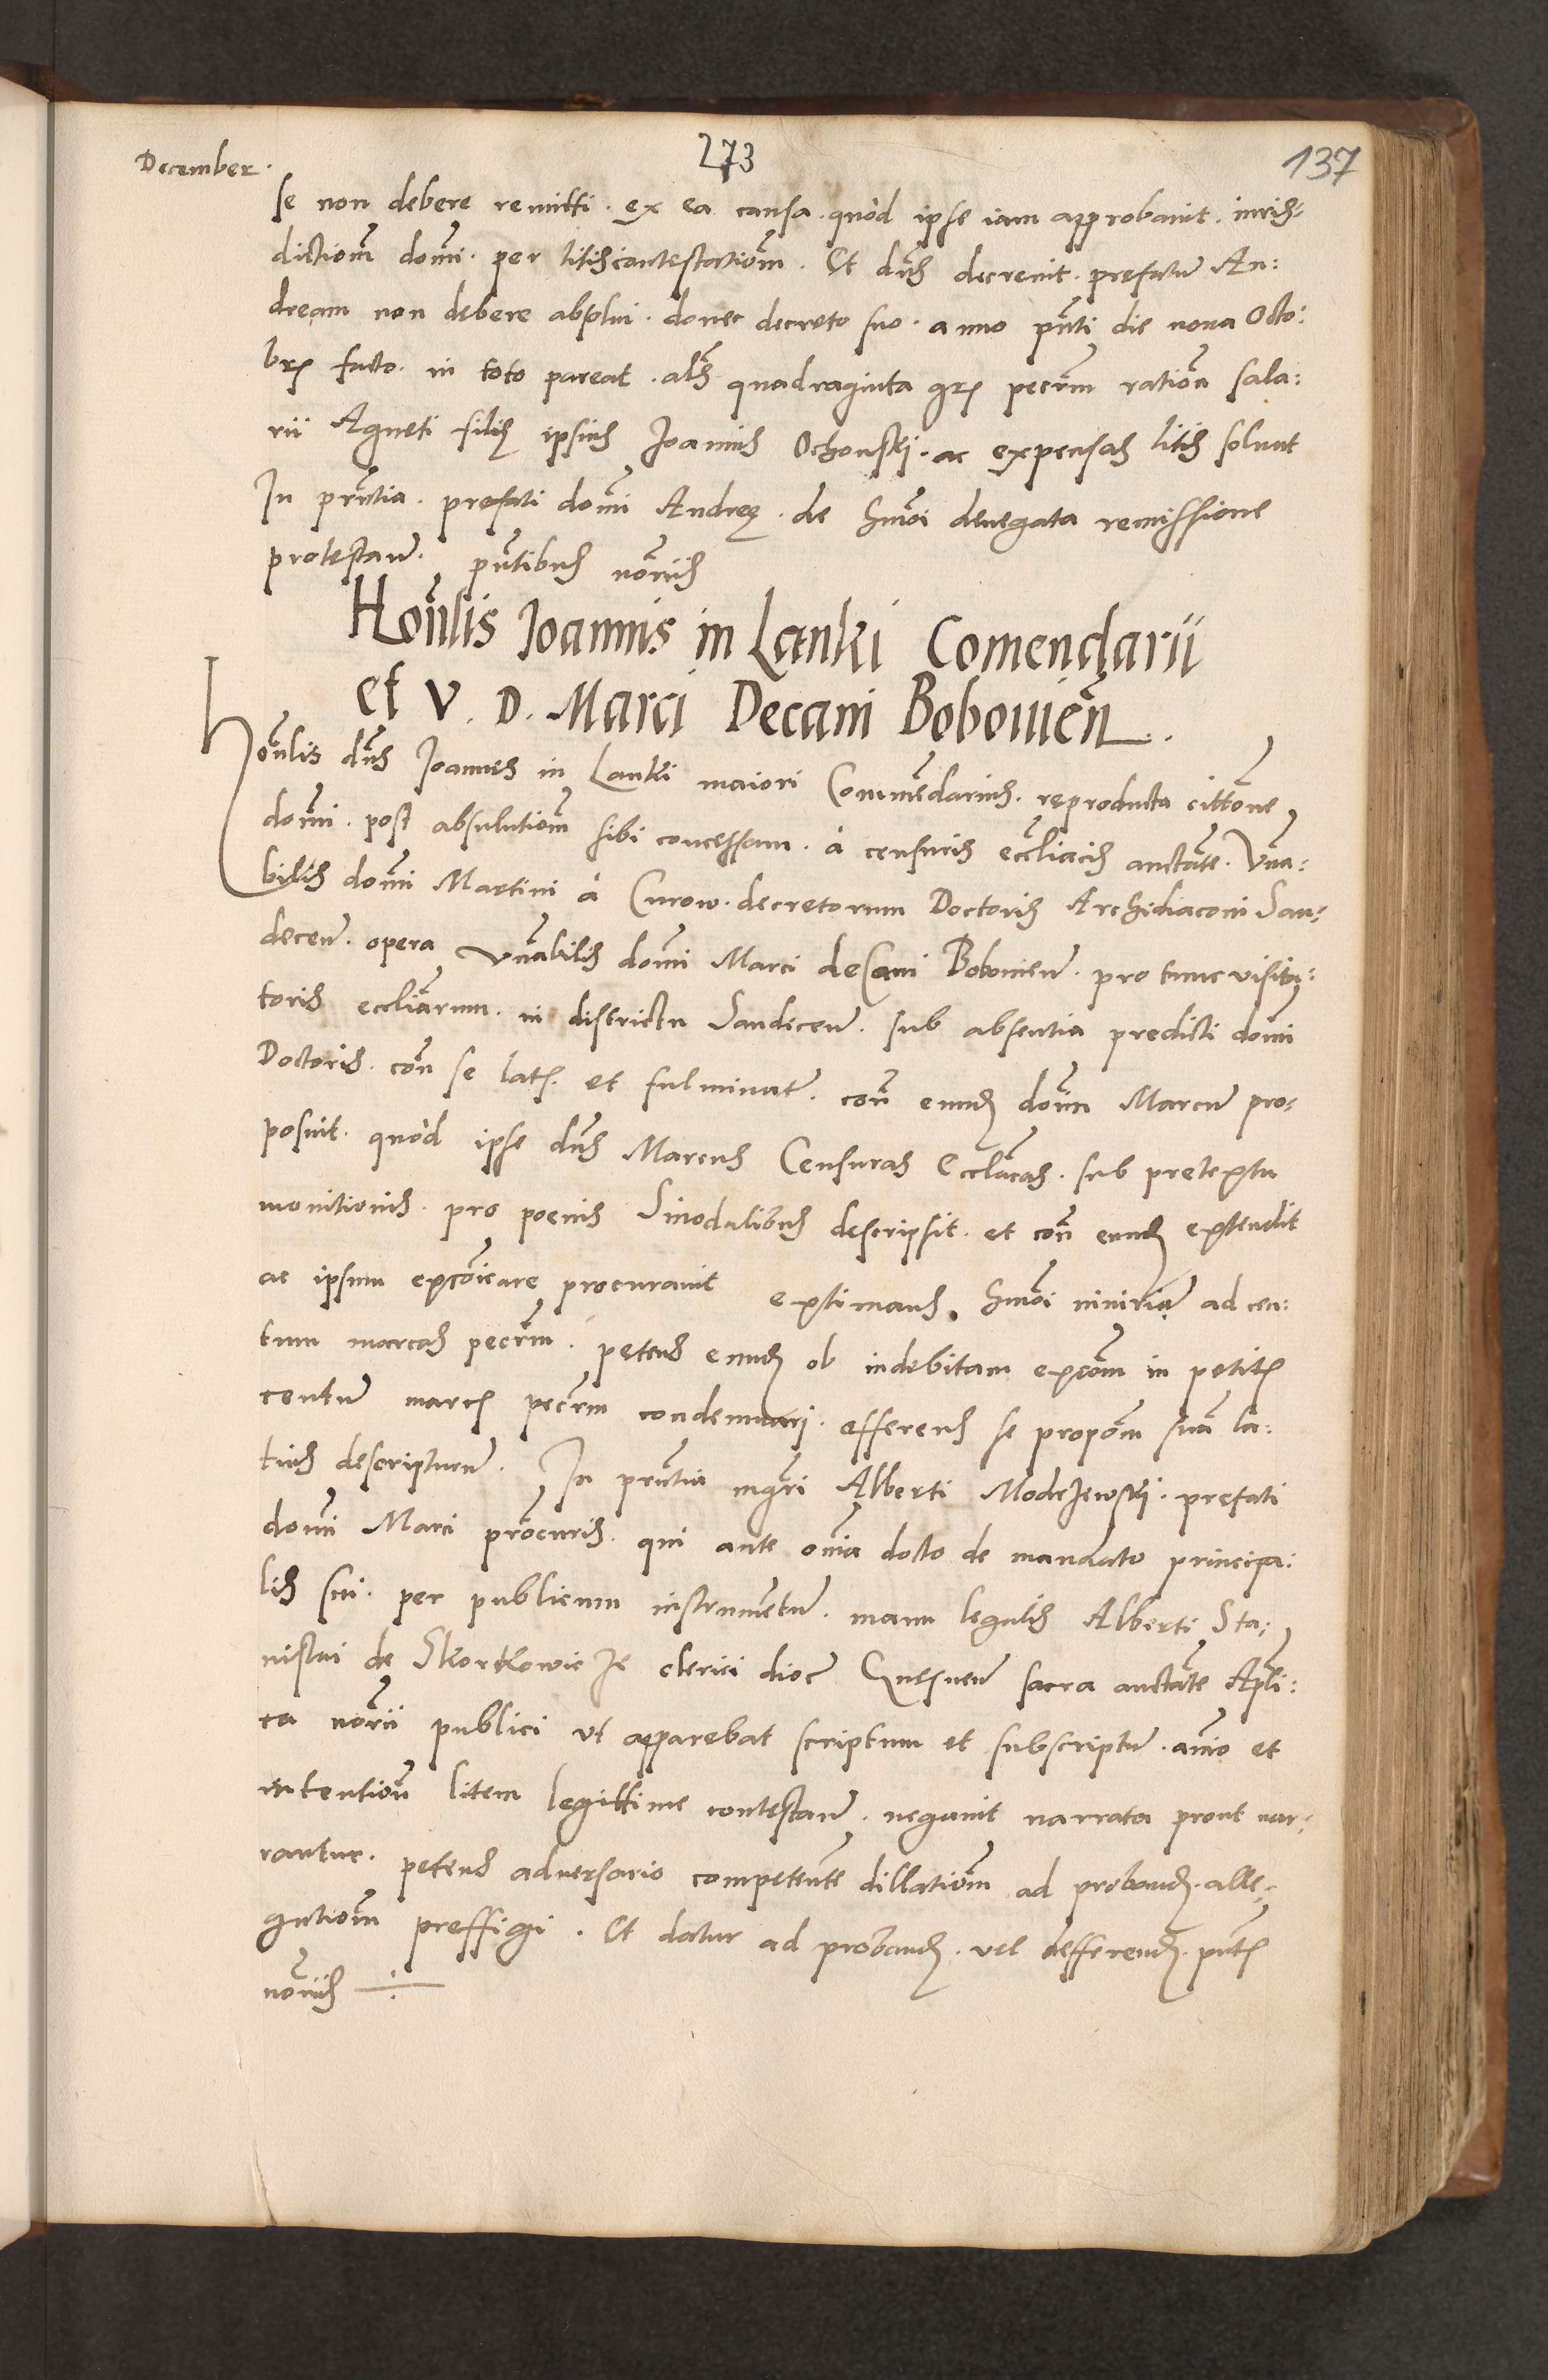 December.
273
137
se non debere remitti. ex ea causa. quòd ipse iam approbauit. iuris-
dictiom̄ domī. per litiscontestatiom̄. Et dn̄s decreuit. prefatu An:
dream non debere absolui. donec decreto suo. anno pn̄ti die nona Octo:
brῑs facto. in toto pareat. als̄ quadraginta grῑs pecr̄m ration̄ sala:
rii Agneti filię ipsius Joannis Ochonski. ac expensas litis soluat
In prn̄tia. prefati domī Andreę. de hmōi denegata remissione
protestan̄. pn̄tibus nor̄iis
Honl̄is Joannis in Lanki Comendarii
et V. D. Marci Decani Bobouien̄.
Honl̄is dn̄s Joannes in Lanki maiori Commēdarius. reproducta citt̄one
domī. post absolutiom̄ sibi concessam. à censuris eccl̄iacis auctāte. Vn̄a-
bilis domī Martini à Curow. decretorum Doctoris Archidiaconi San-
decen̄. opera Vn̄abilis domī Marci deCani Bobouien̄. pro tunc visita:
toris eccl̄iarum. in districtu Sandecen̄. sub absentia predicti domī
Doctoris. con̄ se lat̄. et fulminat̄. con̄ eund̄ dom̄ Marcū pro-
posuit. quòd ipse dn̄s Marcus Censuras Eccl̄acas. sub pretextu
monitionis. pro poenis Sinodalibus descripsit. et con̄ eund̄ extendit
ac ipsum excōicare procurauit extimans. hmōi iniuriā ad cen:
tum marcas pecr̄m. petens eund̄ ob indebitam excōm in petit̄
centū marc̄ pecr̄m condemnari. offerens se propōm suā la:
tius descripturū. In prn̄tia mgr̄i Alberti Modrzewski. prefati
domī Marci procur̄is. qui ante omīa docto de mandato principa:
lis sui. per publicum instrumētū. manu legalis Alberti Sta-
nislai de Skorkowicze clerici dioc̄ Gnesnen̄ sacra auctāte Apl̄i:
ca nor̄ii publici vt apparebat scriptum et subscriptū. animo et
intention̄ litem legittime contestan̄. negauit narrata prout nar-
rantur. petens aduersario competentē dillatiom̄ ad proband̄. alle-
gatiom̄ preffigi. Et datur ad proband̄. vel defferend̄. pn̄t̄
nor̄iis